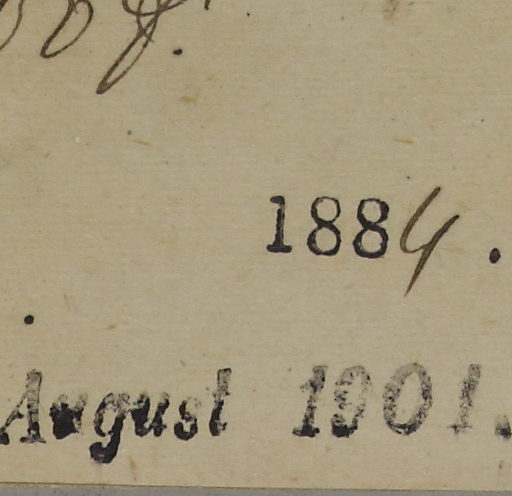 1884.
August 1901.